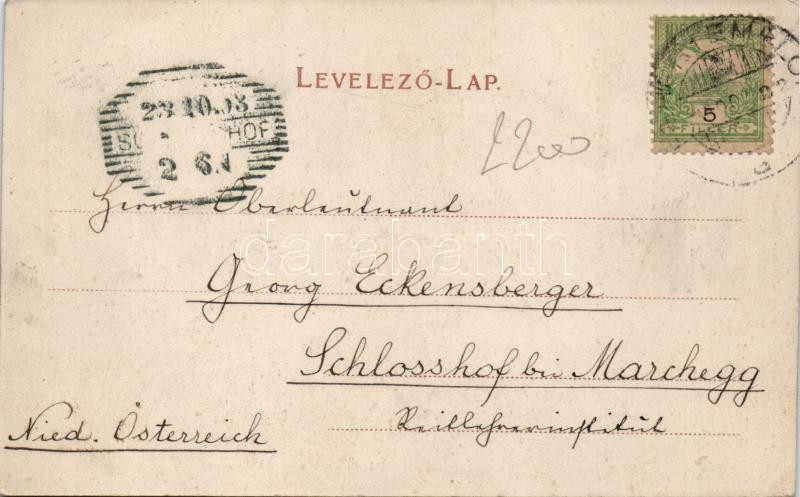 LEVELEZŐ-LAP.
23 10.03
2 6.N
5
FILLÉR
2200
Herrn Oberleutnant
darabanth
Georg Eckensberger
Schlosshof bei Marchegg
Reitlehrerinstitut
Nied. Österreich